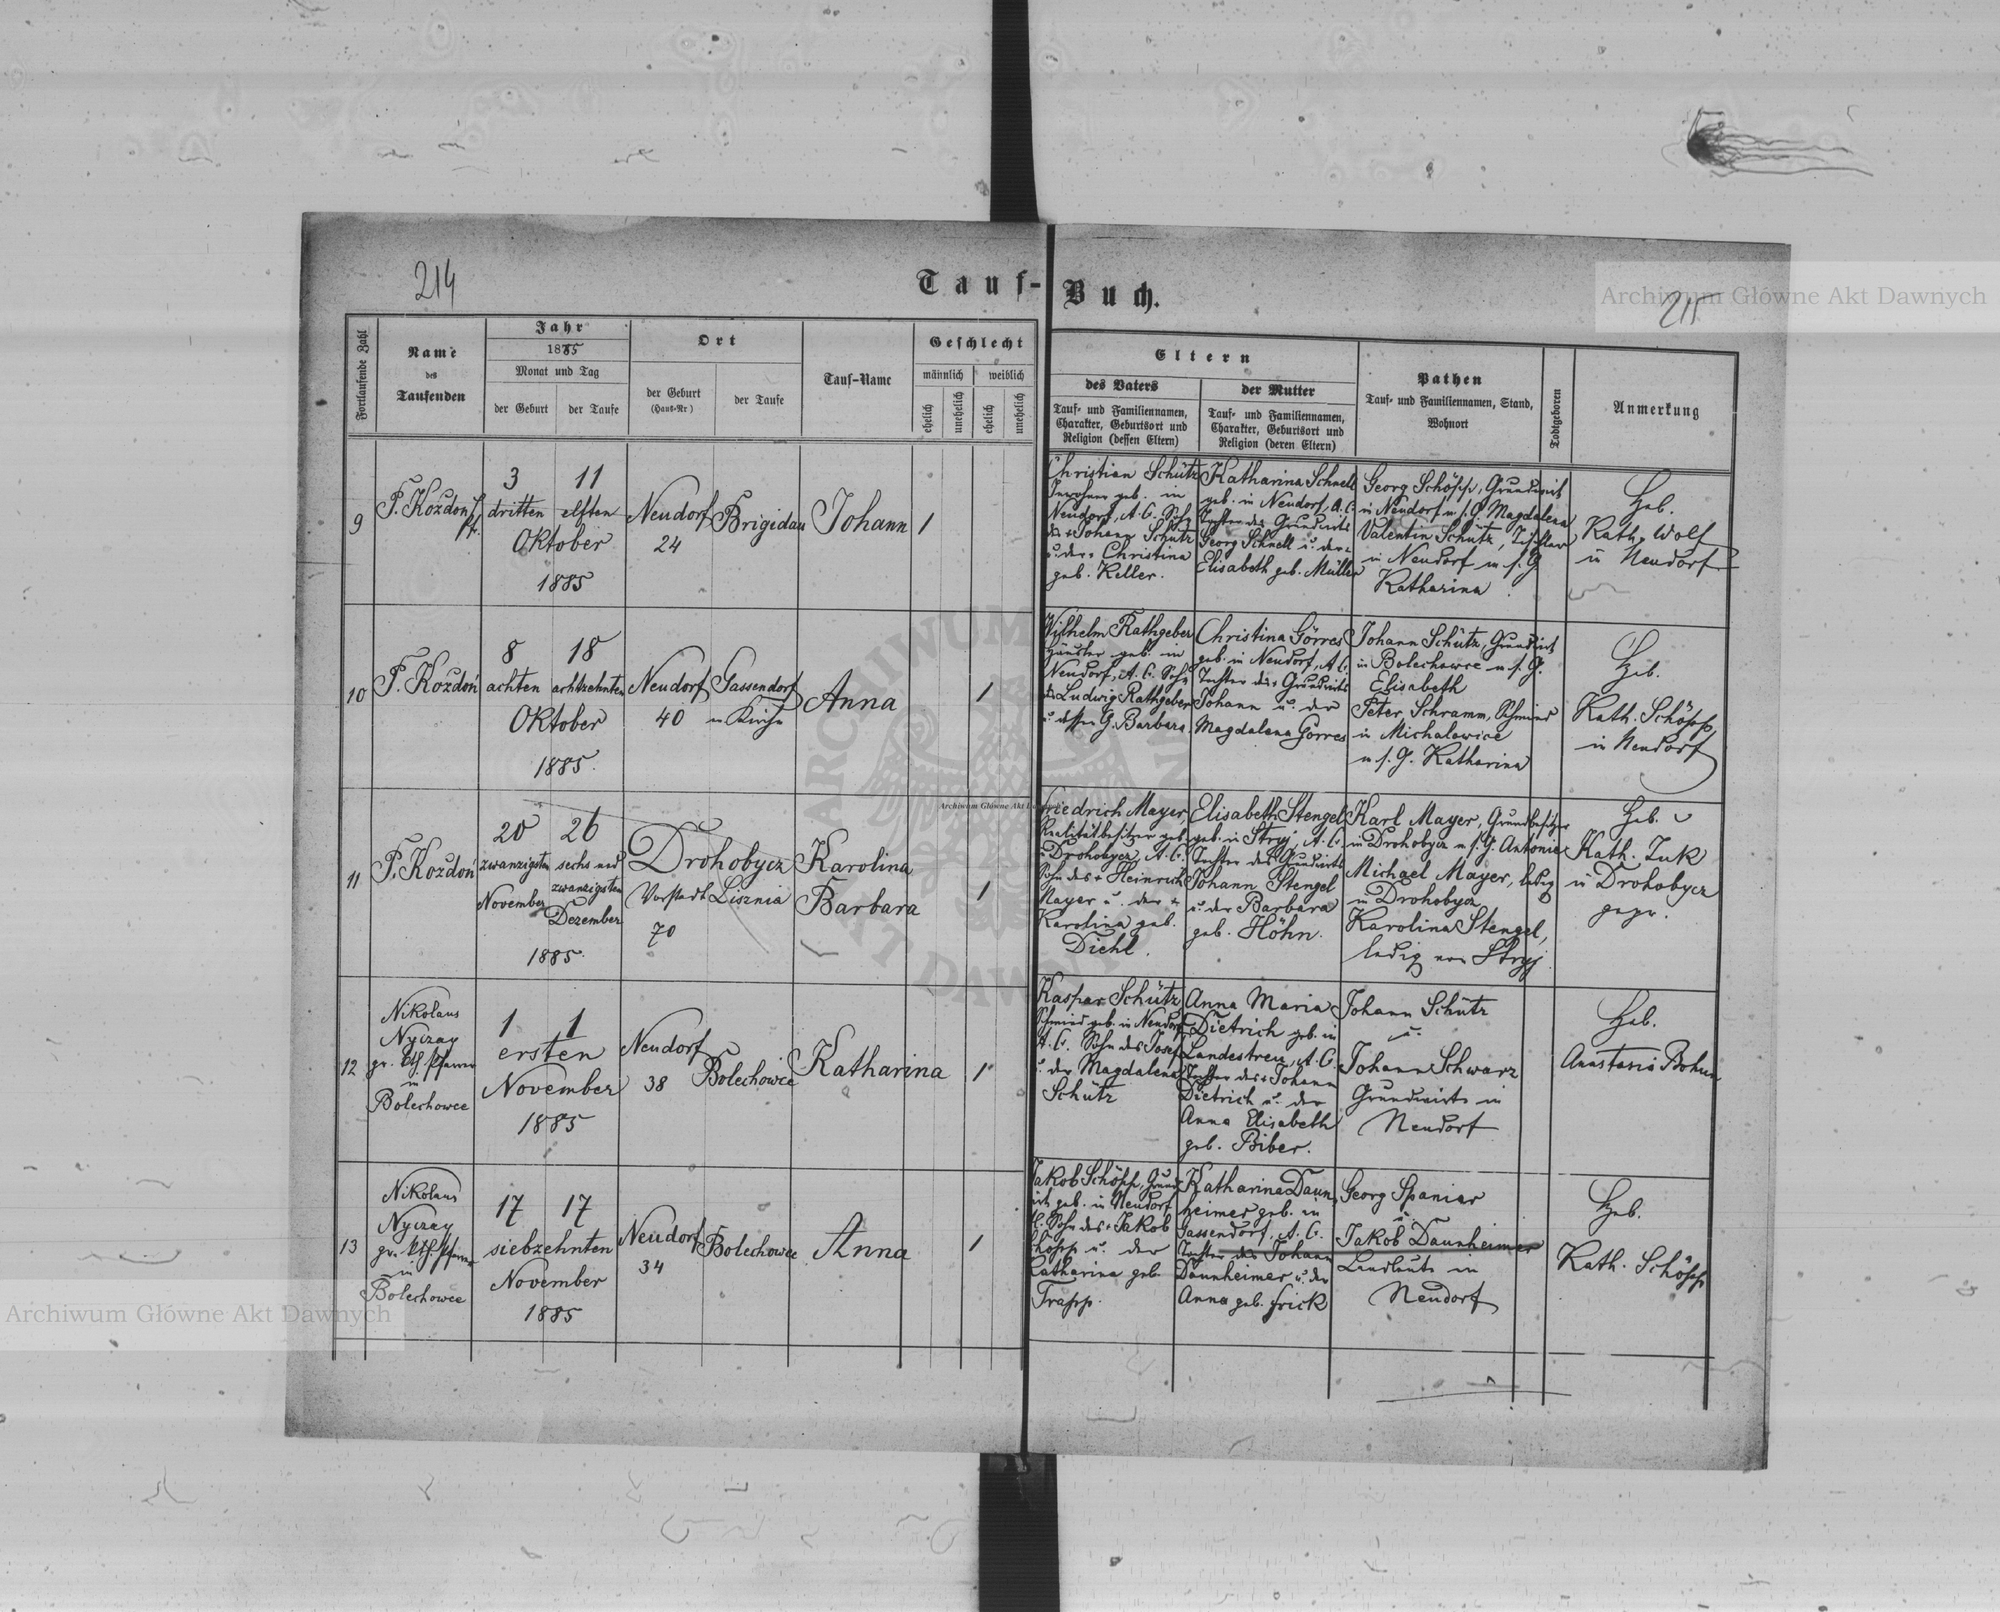 214
Tauf-
Buch.
215
Archiwum Główne Akt Dawnych
Fortlaufende Zahl
Name
des
Taufenden
Jahr
1885
Monat und Tag
der Geburt
der Taufe
Ort
der Geburt
(Haus-Nr)
der Taufe
Tauf-Name
Geschlecht
männlich
weiblich
ehelich
unehelich
ehelich
unehelich
Eltern
des Vaters
Tauf- und Familiennamen,
Charakter, Geburtsort und
Religion (dessen Eltern)
der Mutter
Tauf- und Familiennamen,
Charakter, Geburtsort und
Religion (deren Eltern)
Pathen
Tauf- und Familiennamen, Stand,
Wohnort
Todtgeboren
Anmerkung
9
J. Kozdoń
Pf.
3
dritten
11
elften
Oktober
1885
Neudorf
24
Brigidau
Johann
1
Christian Schütz
Inwohner geb. in
Neudorf, A. C. Sohn
des + Johann Schütz
u. der + Christina
geb. Keller.
Katharina Schnell
geb. in Neudorf, A. C.
Tochter des Grundwirts
Georg Schnell u. der
Elisabeth geb. Müller
Georg Schöpp, Grundwirt
in Neudorf u. s. G. Magdalena
Valentin Schütz, Tischler
in Neudorf u. s. G.
Katharina
Heb.
Kath. Wolf
in Neudorf
10
J. Kozdoń
8
achten
18
achtzehnten
Oktober
1885.
Neudorf
40
Gassendorf
in Kirche
Anna
1
Wilhelm Rathgeber
Häusler geb. in
Neudorf, A. C. Sohn
des Ludwig Rathgeber
u. dessen G. Barbara
Christina Görres
geb. in Neudorf, A. C.
Tochter des + Grundwirts
Johann u. der
Magdalena Görres
Johann Schütz, Grundwirt
in Bolechowce u. s. G.
Elisabeth
Peter Schramm, Schmied
in Michalowice
u. s. G. Katharina
Heb.
Kath. Schöpp,
in Neudorf
11
J. Kozdoń
20
zwanzigsten
November
26
sechs und
zwanzigsten
Dezember
1885.
Drohobycz
Vorstadt Lisznia
70
Karolina
Barbara
1
Friedrich Mayer,
Realitätbesitzer geb.
in Drohobycz, A. C.
Sohn des + Heinrich
Mayer u. der +
Karolina geb.
Diehl.
Elisabeth Stengel
geb. in Stryj, A. C.
Tochter des Grundwirts
Johann Stengel
u. der Barbara
geb. Höhn.
Karl Mayer, Grundbesitzer
in Drohobycz u. s. G. Antonie
Michael Mayer, ledig
in Drohobycz
Karolina Stengel,
ledig von Stryj
Heb.
Kath. Zuk
in Drohobycz
gepr.
12
Nikolaus
Nyczay
gr. kth. Pfarrer
in
Bolechowce
1
1
ersten
November
1885
Neudorf
38
Bolechowce
Katharina
1
Kaspar Schütz,
Schmied geb. in Neudorf
A. C. Sohn des Josef
u. der Magdalena
Schütz
Anna Maria
Dietrich geb. in
Landestreu, A. C.
Tochter des + Johann
Dietrich u. der
Anna Elisabeth
geb. Biber.
Johann Schütz
u.
Johann Schwarz
Grundwirte in
Neudorf
Heb.
Anastasia Bohun
13
Nikolaus
Nyczay
gr. kth. Pfarrer
in
Bolechowce
17
17
siebzehnten
November
1885
Neudorf
34
Bolechowce
Anna
1
Jakob Schöpp, Grund-
wirt geb. in Neudorf
A. C. Sohn des + Jakob
Schöpp u. der
Katharina geb.
Trapp.
Katharina Daun-
heimer geb. in
Gassendorf, A. C.
Tochter des Johann
Daunheimer u. der
Anna geb. Frick
Georg Spanier
u.
Jakob Daunheimer
Landleute in
Neudorf
Heb.
Kath. Schöpp
Archiwum Główne Akt Dawnych
Archiwum Główne Akt Dawnych
ARCHIWUM
AKT DAWNYCH